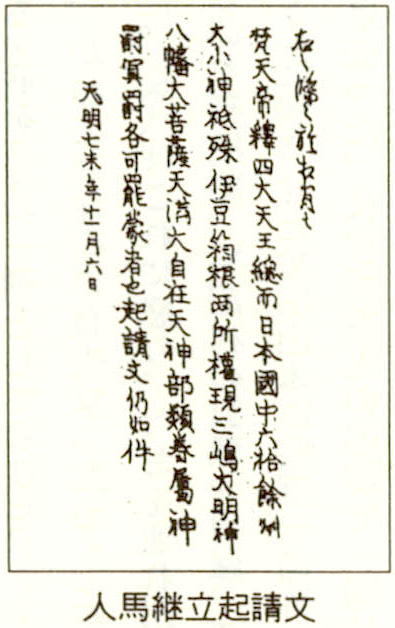 右之條々於相背ハ
梵天帝釋四大天王總而日本國中六拾餘州
大小神祇殊伊豆箱根両所權現三嶋大明神
八幡大菩薩天満大自在天神部類眷屬神
罸冥罸各可罷蒙者也起請文仍如件
天明七未年十一月六日
人馬継立起請文